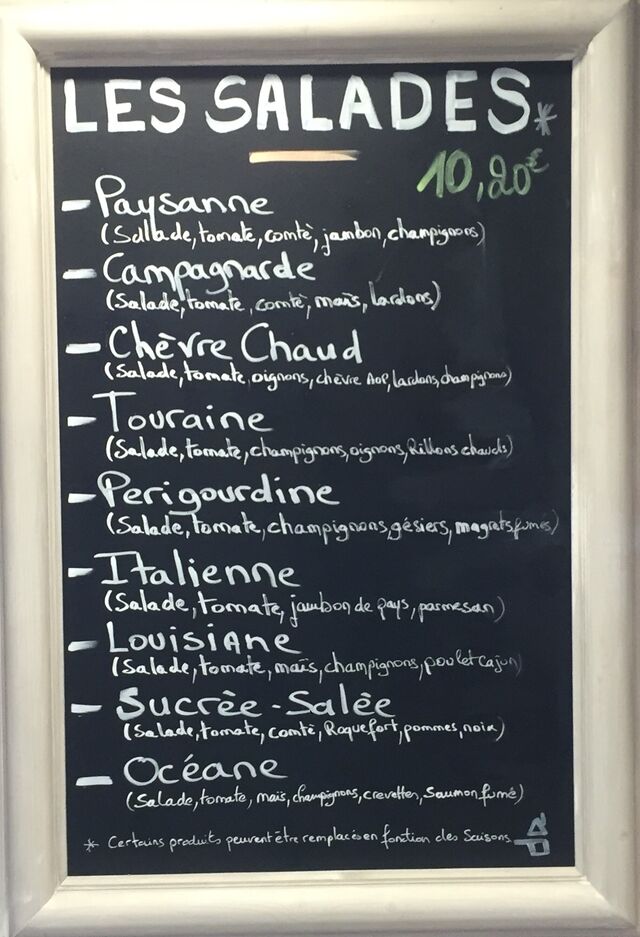 LES SALADES*
10,20€
- Paysanne
(Sallade, tomate, comtè, jambon, champignons)
- Campagnarde
(Salade, tomate, comtè, maïs, lardons)
- Chèvre Chaud
(Salade, tomate, oignons, chèvre AOP, lardons, champignons)
- Touraine
(Salade, tomate, champignons, oignons, Rillons chauds)
- Perigourdine
(Salade, tomate, champignons, gésiers, magrets fumés)
- Italienne
(Salade, tomate, jambon de pays, parmesan)
- Louisiane
(Salade, tomate, maïs, champignons, poulet cajun)
- Sucrèe-Salèe
(Salade, tomate, comtè, Roquefort, pommes, noix)
- Océane
(Salade, tomate, maïs, champignons, crevettes, Saumon fumé)
* Certains produits peuvent être remplacés en fonction des Saisons